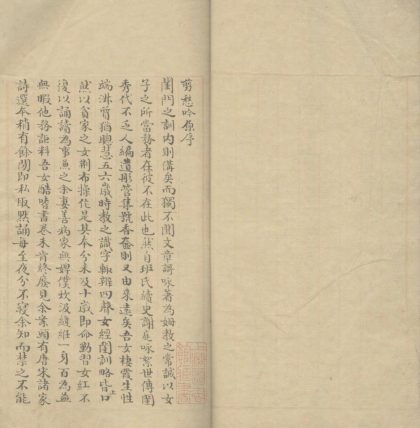 剪愁吟原序
閨門之訓內則備矣而獨不聞文章諷咏著為姆教之常誠以女
子之所當務者在彼不在此也然自班氏續史謝庭咏絮世傳閨
秀代不乏人編遺彤管集號香奩則又由來遠矣吾女棲霞生性
端淑質穎聰慧五六歲時教之識字輒辨四聲女經閨訓略皆上口
然以貧家之女荊布操作是其本分未及十歲即命勤習女紅不
復以誦讀為事無之余妻善病家無婢僕炊汲縫維一身百為無
無暇他務詎料吾女酷嗜書卷未肯終廢見余案頭有唐宋諸家
詩選本稍有餘閒即私取默誦每至夜分不寢余知而禁之不能